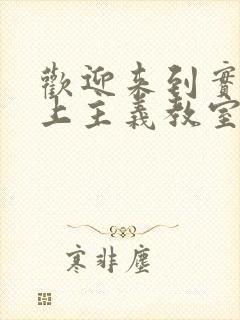 歡迎來到實
上主義教室
寒非塵